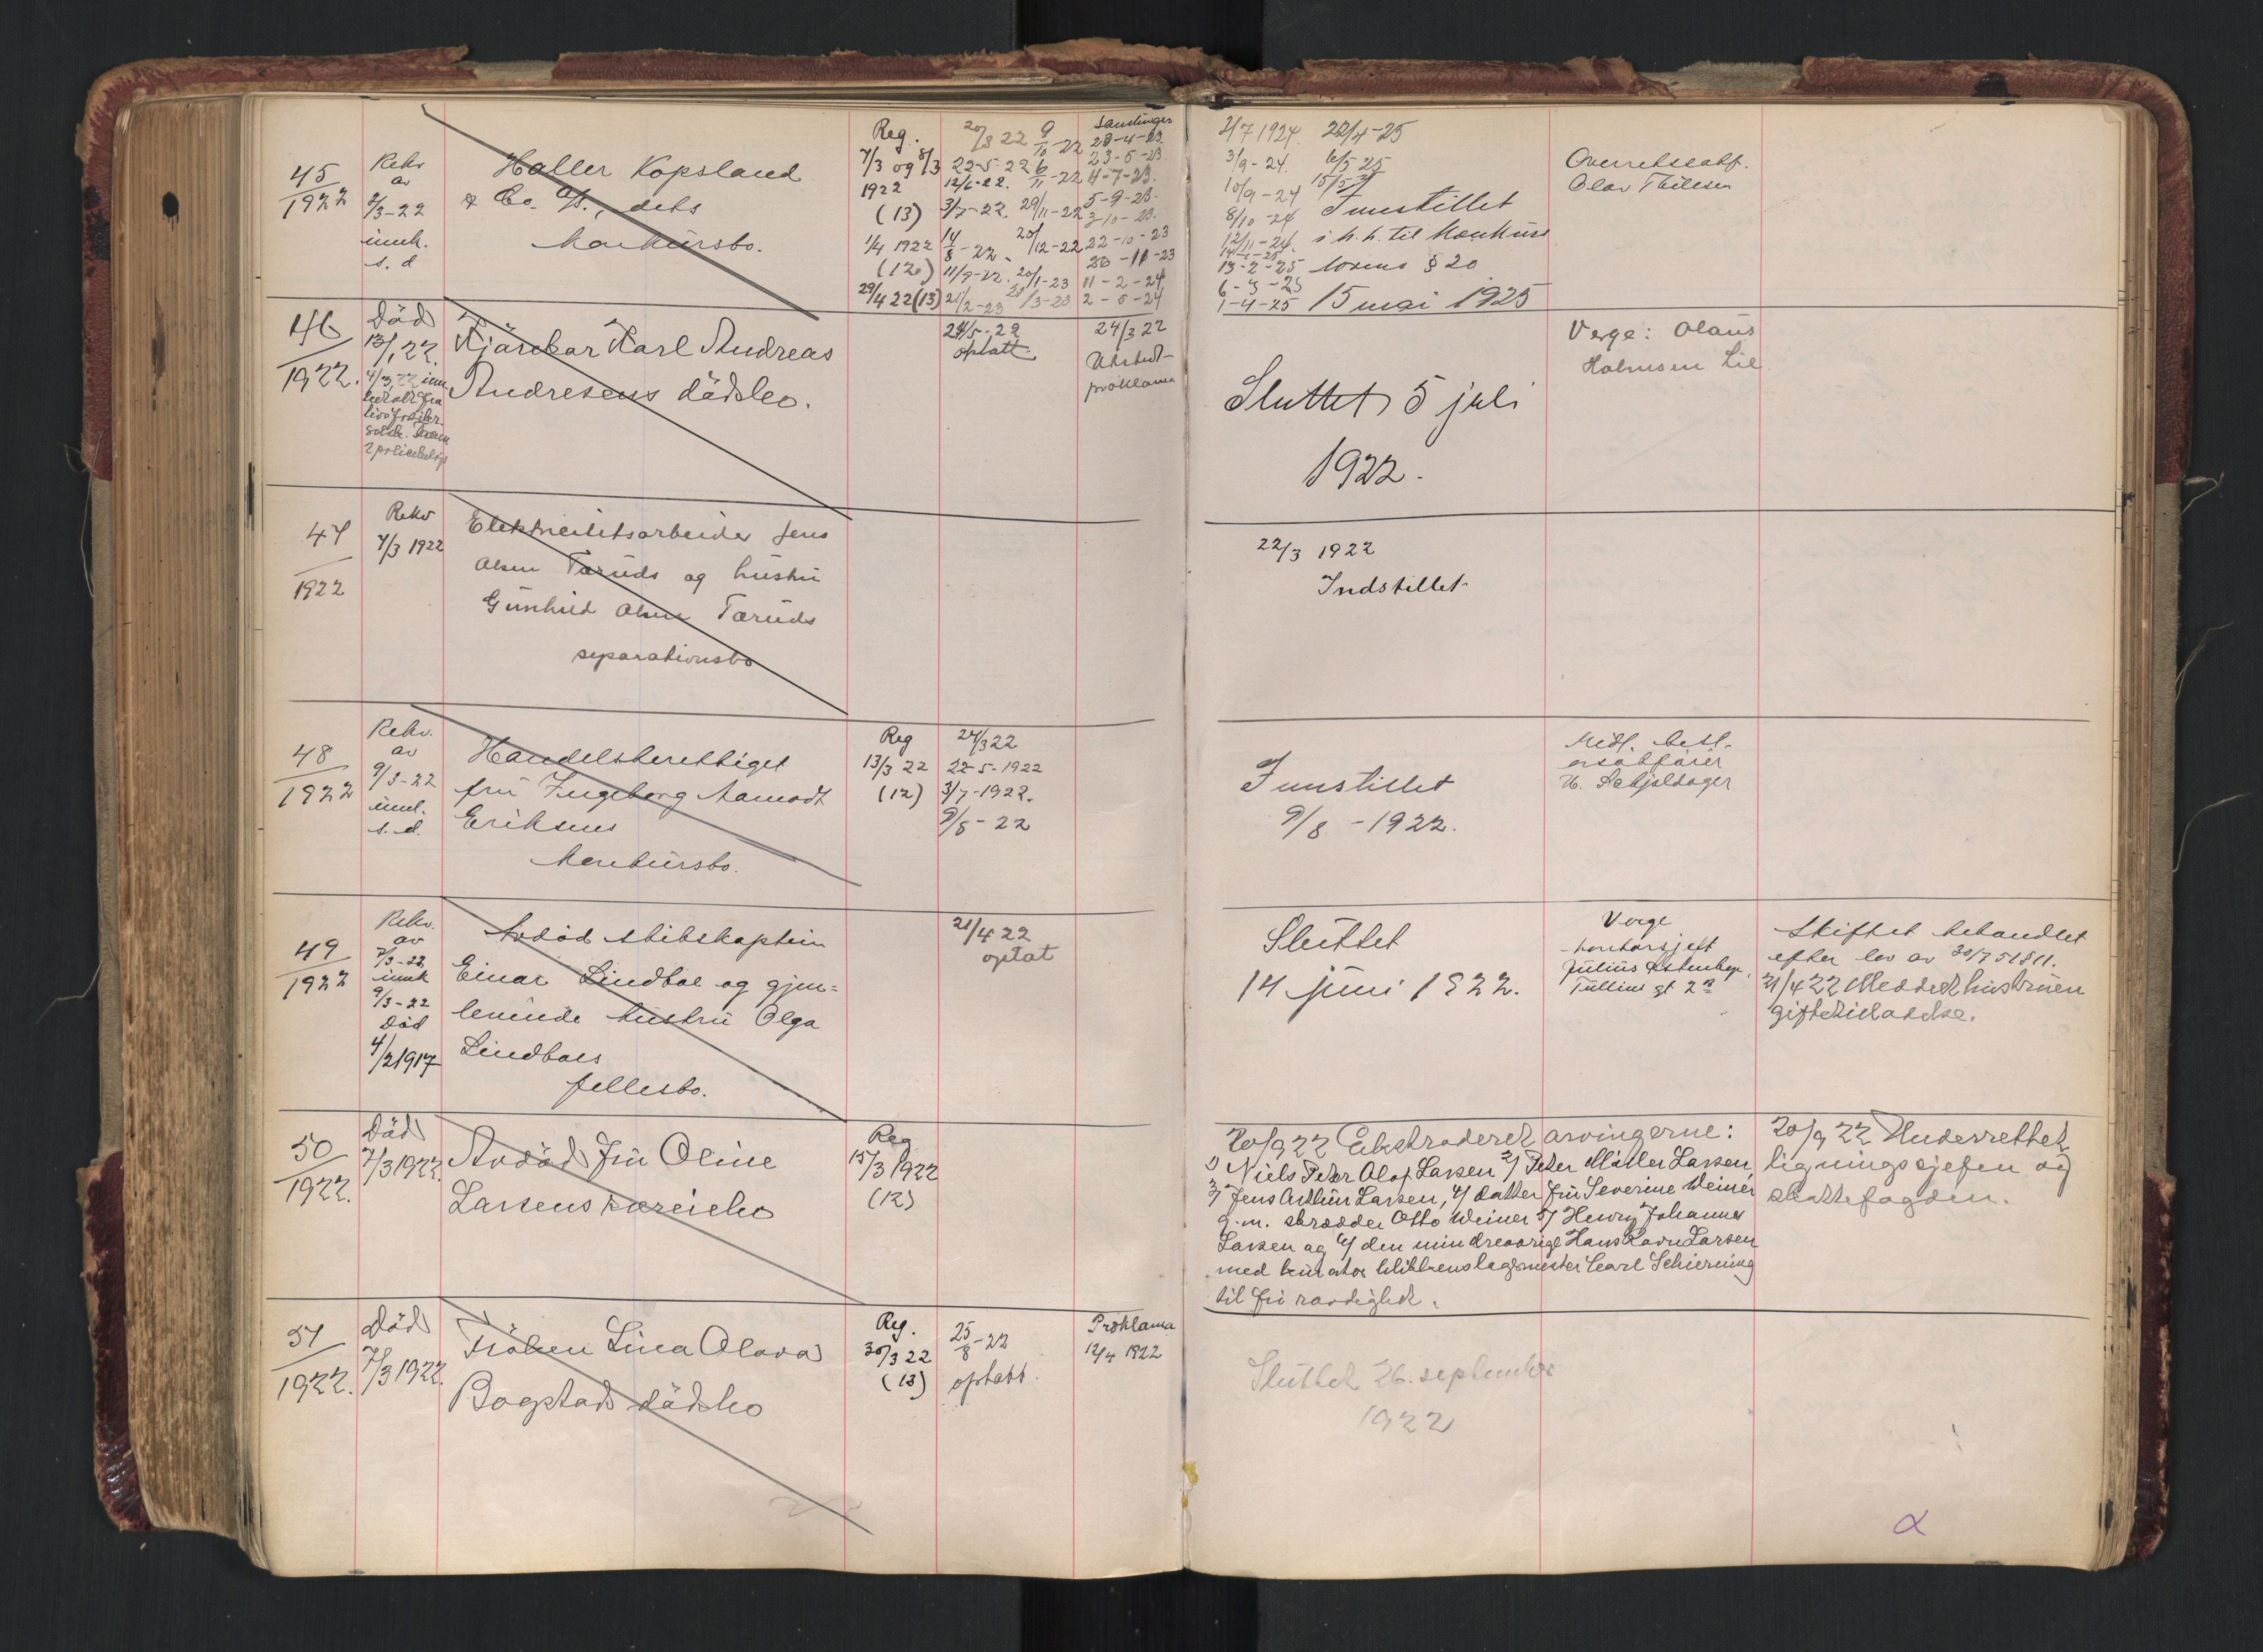 45
1922
Rekv
av
2/3-22
innk.
s. d
Haller Kopsland
& Co. A/s., dets
konkursbo.
Reg.
7/3 og 8/3
1922
(13)
1/4 1922
(12)
29/4 22 (13)
20/3 22
22-5-22
12/6-22.
3/7-22.
14/8-22.
11/9-22.
21/2-23
9/10-22
6/11-22
29/11-22
20/12-22
20/1-23
Samlinger
28-4-23.
23-5-23.
4-7-23.
5-9-23.
3-10-23.
22-10-23
11-2-24
2-5-24
2/7 1924. 22/4-25
3/9-24. 6/5 25
10/9-24 15/5
8/10-24 Innstillet
12/11-24. i h. h. til konkurs
13-2-25 lovens § 20
6-3-25
1-4-25 15 mai 1925
Overretssakf.
Olav
46
1922.
Död
13/1 22.
4/3 22 inn
Karl Andreas
Andresens dödsbo.
24/5-22
optatt.
24/3 22
Utstedt
proklama
Sluttet 5 juli
1922.
Verge: Olaus
Halvorsen Lie
47
1922
Rekv
7/3 1922
Elektricitetsarbeider Jens
Olsen Taruds og hustru
Gunhild Olsen Taruds
separationsbo
22/3 1922
Indstillet
48
1922
Rekv.
av
9/3-22
innk.
s. d.
Handelsberettiget
fru Ingeborg Aamodt
Eriksens
konkursbo.
Reg
13/3 22
(12)
24/3 22
22-5-1922
3/7-1922.
9/8-22
Innstillet
9/8-1922.
Midl. best.
49
1922
Rekv.
av
7/3-22
innk
9/3-22
Död
4/2 1917
Avdöd skibskaptein
Einar Lindboe og gjen-
levende hustru Olga
Lindboes
fellesbo.
21/4 22
optat
Sluttet
14 juni 1922.
Verge
kontorsjef
Julius
Tullins gt 2
Skiftet behandlet
efter lov av 30/7 51 § 11.
21/4 22 Meddelt hustruen
giftetillatelse.
50
1922.
Död
7/3 1922.
Avdöd Fru Oline
Larsens særeiebo
Reg
15/3 1922
(12)
20/9 22 Ekstraderet arvingerne:
1/ Niels Peter Olaf Larsen 2/ Peter Müller Larsen,
3/ Jens Arthur Larsen, 4/ datter Fru Severine Weiner
g. m. skrædder Otto Weiner 5/ Henry Johannes
Larsen og 6/ den mindreaarige Hans Ravn Larsen
med kurator blikkenslagermester Carl Schierning
til fri raadighet.
20/9 22 Underrettet
ligningssjefen og
skattefogden.
51
1922.
Död
7/3 1922.
Fröken Lina Olava
Bogstads dödsbo
Reg.
30/3 22
(13)
25/8-22
optatt.
Proklama
12/4 1922
Sluttet 26. september
1922